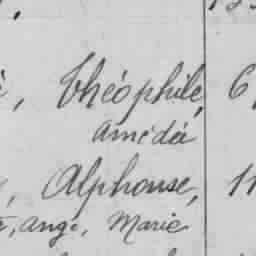 , Théophile, 6
Amédée
, Alphonse, 11
, Ange, Marie